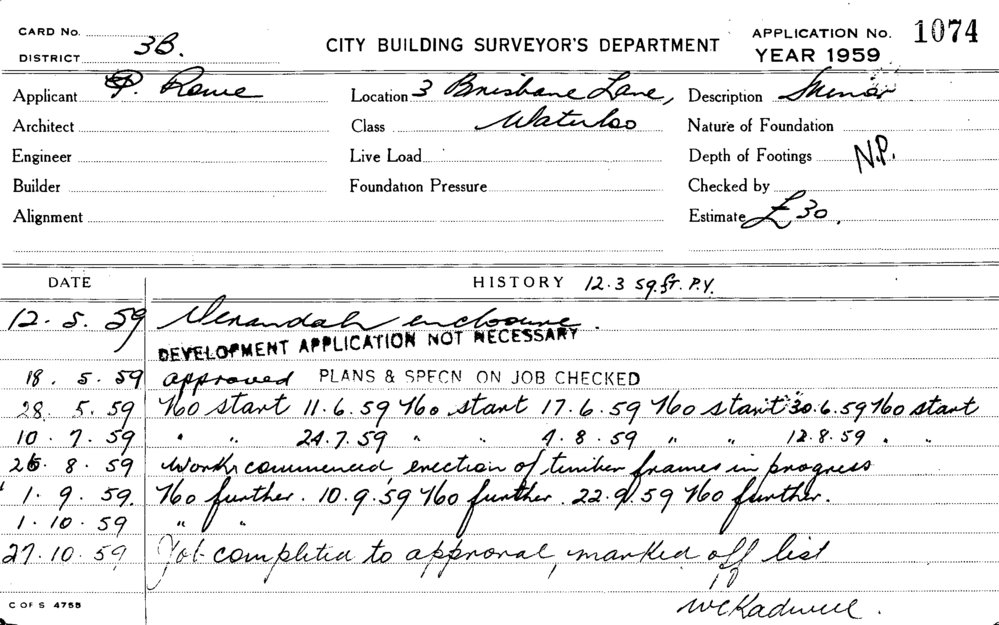 CARD No.
DISTRICT 3B.
CITY BUILDING SURVEYOR'S DEPARTMENT
APPLICATION No. 1074
YEAR 1959
Applicant P. Rowe
Location 3 Brisbane Lane,
Description Minor
Architect
Class Waterloo
Nature of Foundation
Engineer
Live Load
Depth of Footings N.P.
Builder
Foundation Pressure
Checked by
Alignment
Estimate £30.
DATE
HISTORY 12.3 sq.ft. P.Y.
12.5.59 Verandah enclosure.
DEVELOPMENT APPLICATION NOT NECESSARY
18.5.59 approved PLANS & SPECN ON JOB CHECKED
28.5.59 No start 11.6.59 No start 17.6.59 No start 30.6.59 No start
10.7.59 " " 24.7.59 " " 4.8.59 " " 12.8.59 " "
26.8.59 Work commenced erection of timber frames in progress
1.9.59. No further. 10.9.59 No further. 22.9.59 No further.
1.10.59 " "
27.10.59 Job completed to approval, marked off list
C OF S 4755